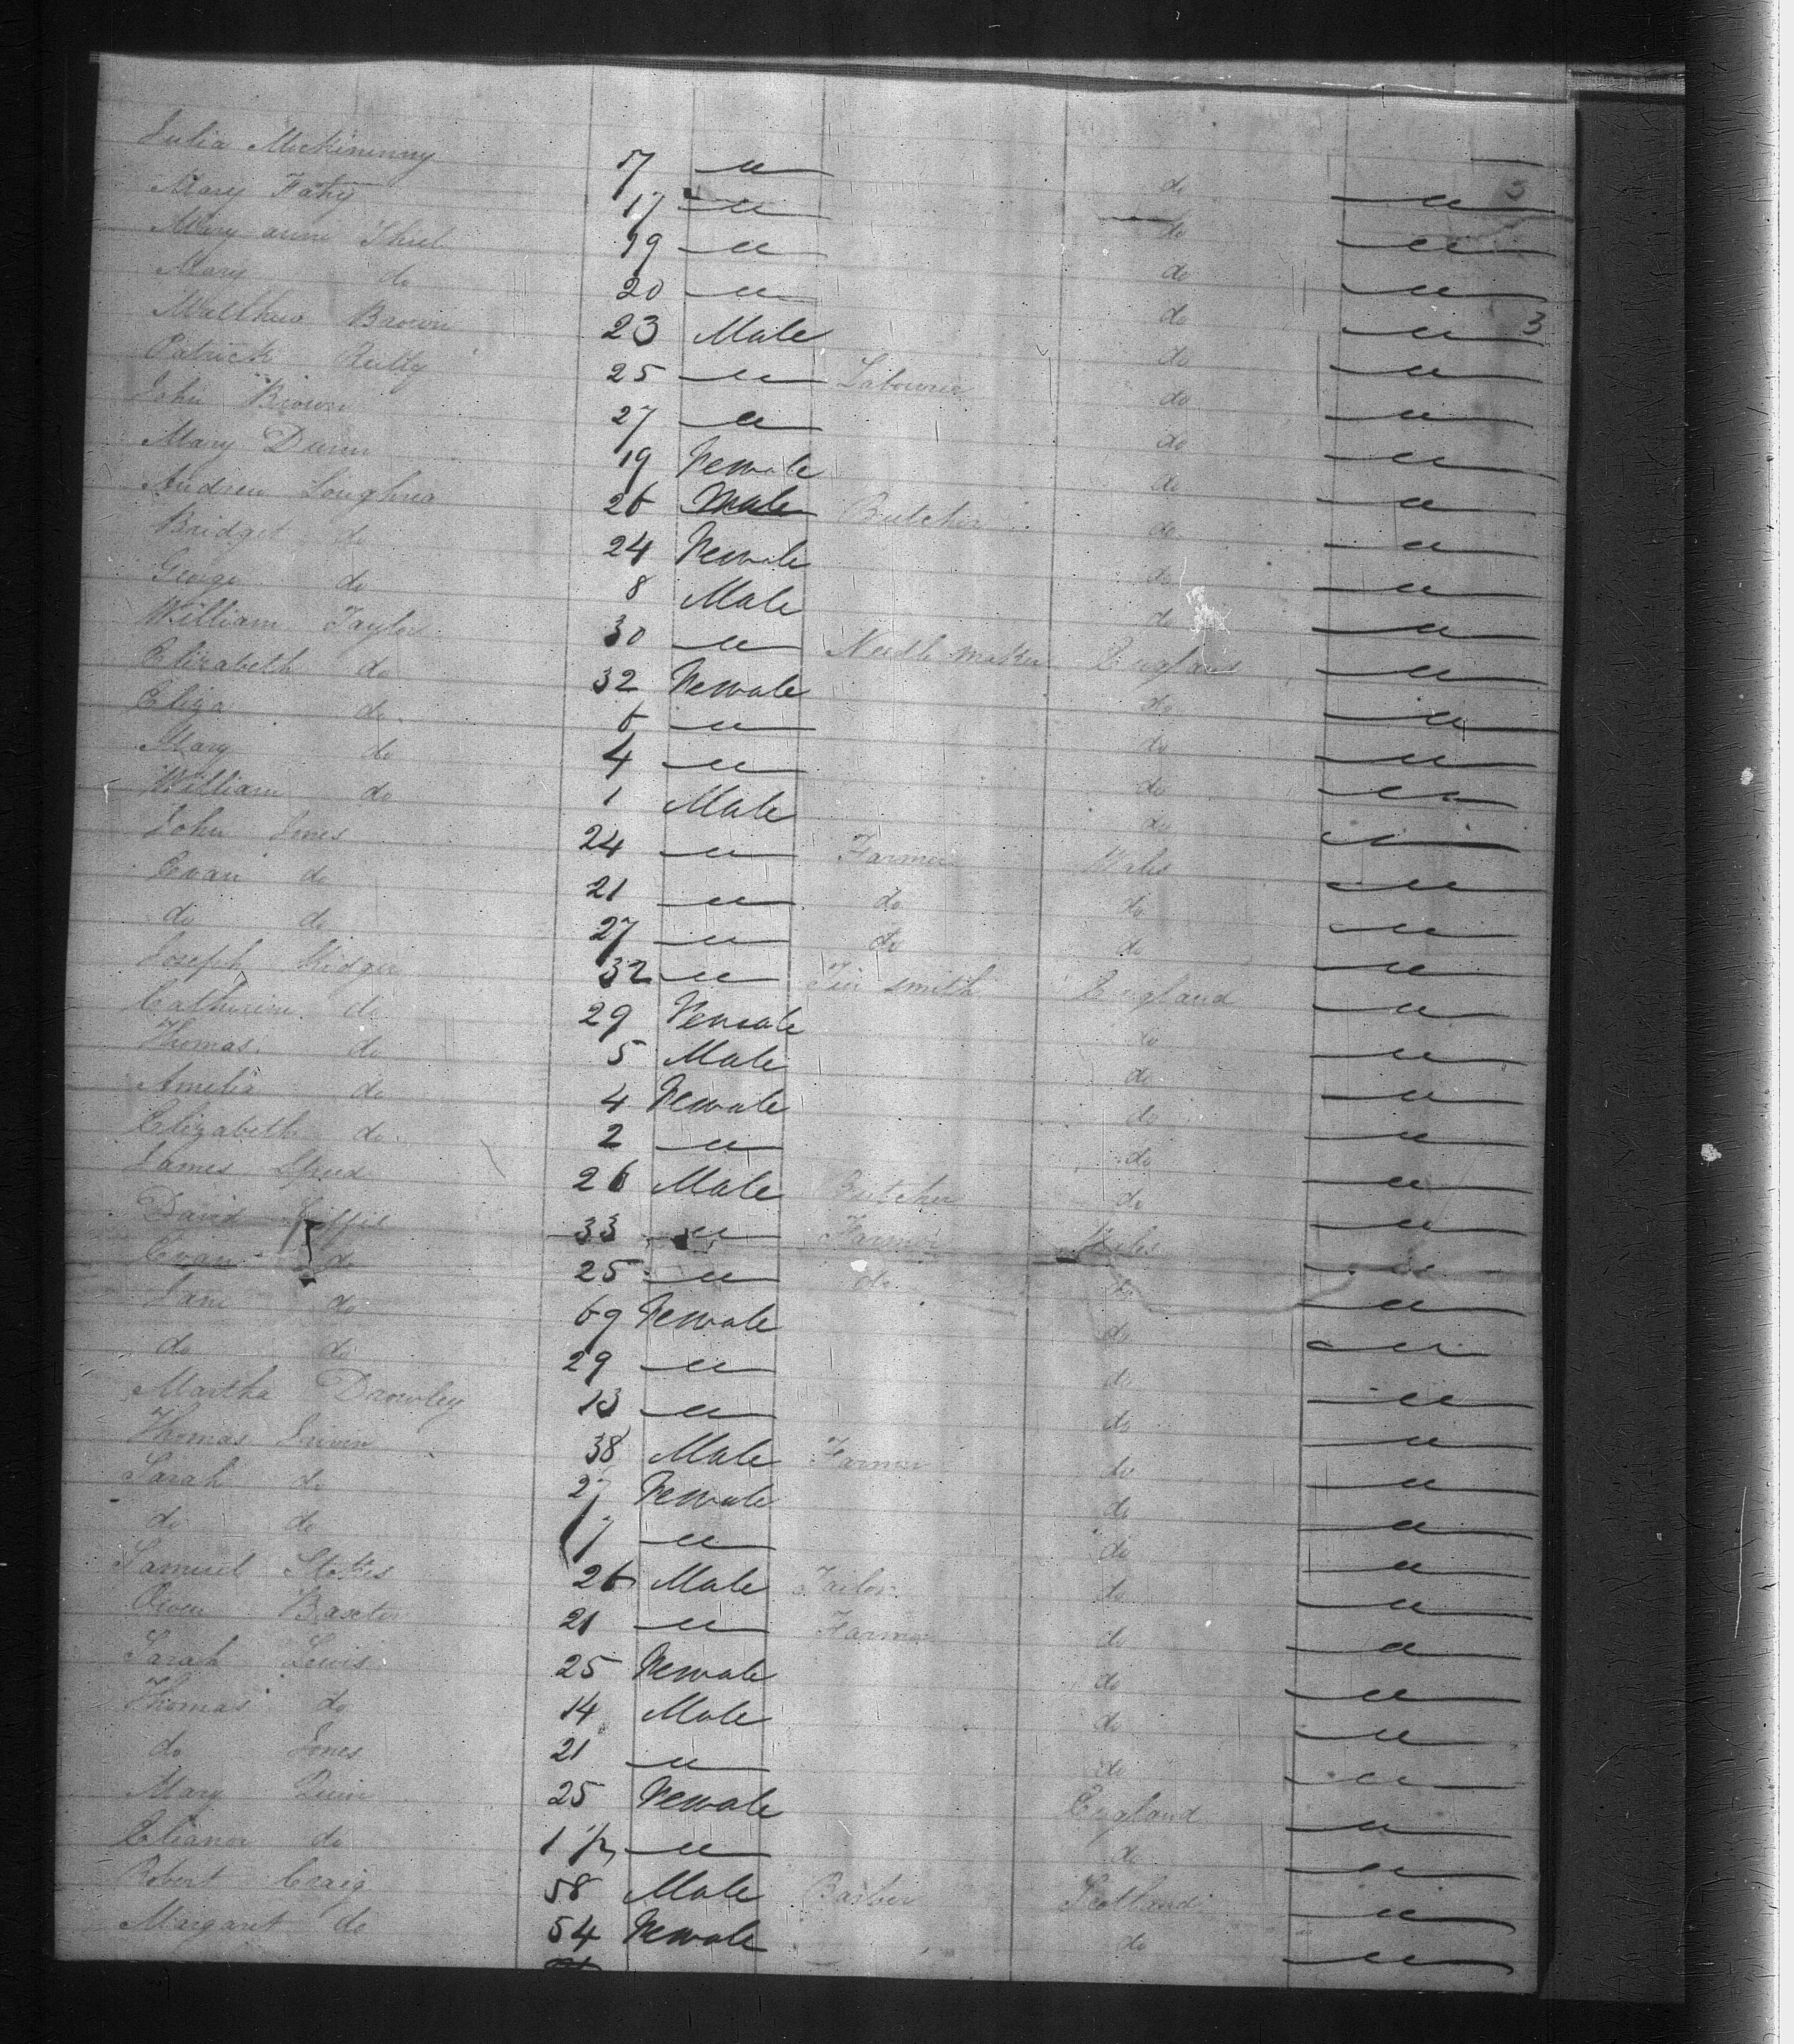 Julia McKininny 17 " do "
Mary Fahy 17 " do "
Mary ann Shiel 19 " do "
Mary do 20 " do " 3
Matthew Brown 23 Male do "
Patrick Reilly 25 " Labourer do "
John Brown 27 " do "
Mary Dunn 19 Female do "
Andrew Loughna 26 Male Butcher do "
Bridget do 24 Female do "
George do 8 Male do "
William Taylor 30 " Needle maker England "
Elizabeth do 32 Female do "
Eliza do 6 " do "
Mary do 4 " do "
William do 1 Male do "
John Jones 24 " Farmer Wales "
Evan do 21 " do do "
do do 27 " do do "
Joseph 32 " Tin smith England "
Catherine do 29 Female do "
Thomas do 5 Male do "
Amelia do 4 Female do "
Elizabeth do 2 " do "
James Speed 26 Male Butcher do "
David 33 " Farmer Wales "
Evan do 25 " do do "
Jane do 69 Female do "
do do 29 " do "
Martha Drowley 13 " do "
Thomas 38 Male Farmer do "
Sarah do 27 Female do "
do do 7 " do "
Samuel Stokes 26 Male Tailor do "
Owen Baxter 21 " Farmer do "
Sarah Lewis 25 Female do "
Thomas do 14 Male do "
do Jones 21 " do "
Mary Quin 25 Female England "
Elianor do 1 1/2 " do "
Robert Craig 58 Male Barber Scotland "
Margaret do 54 Female do "